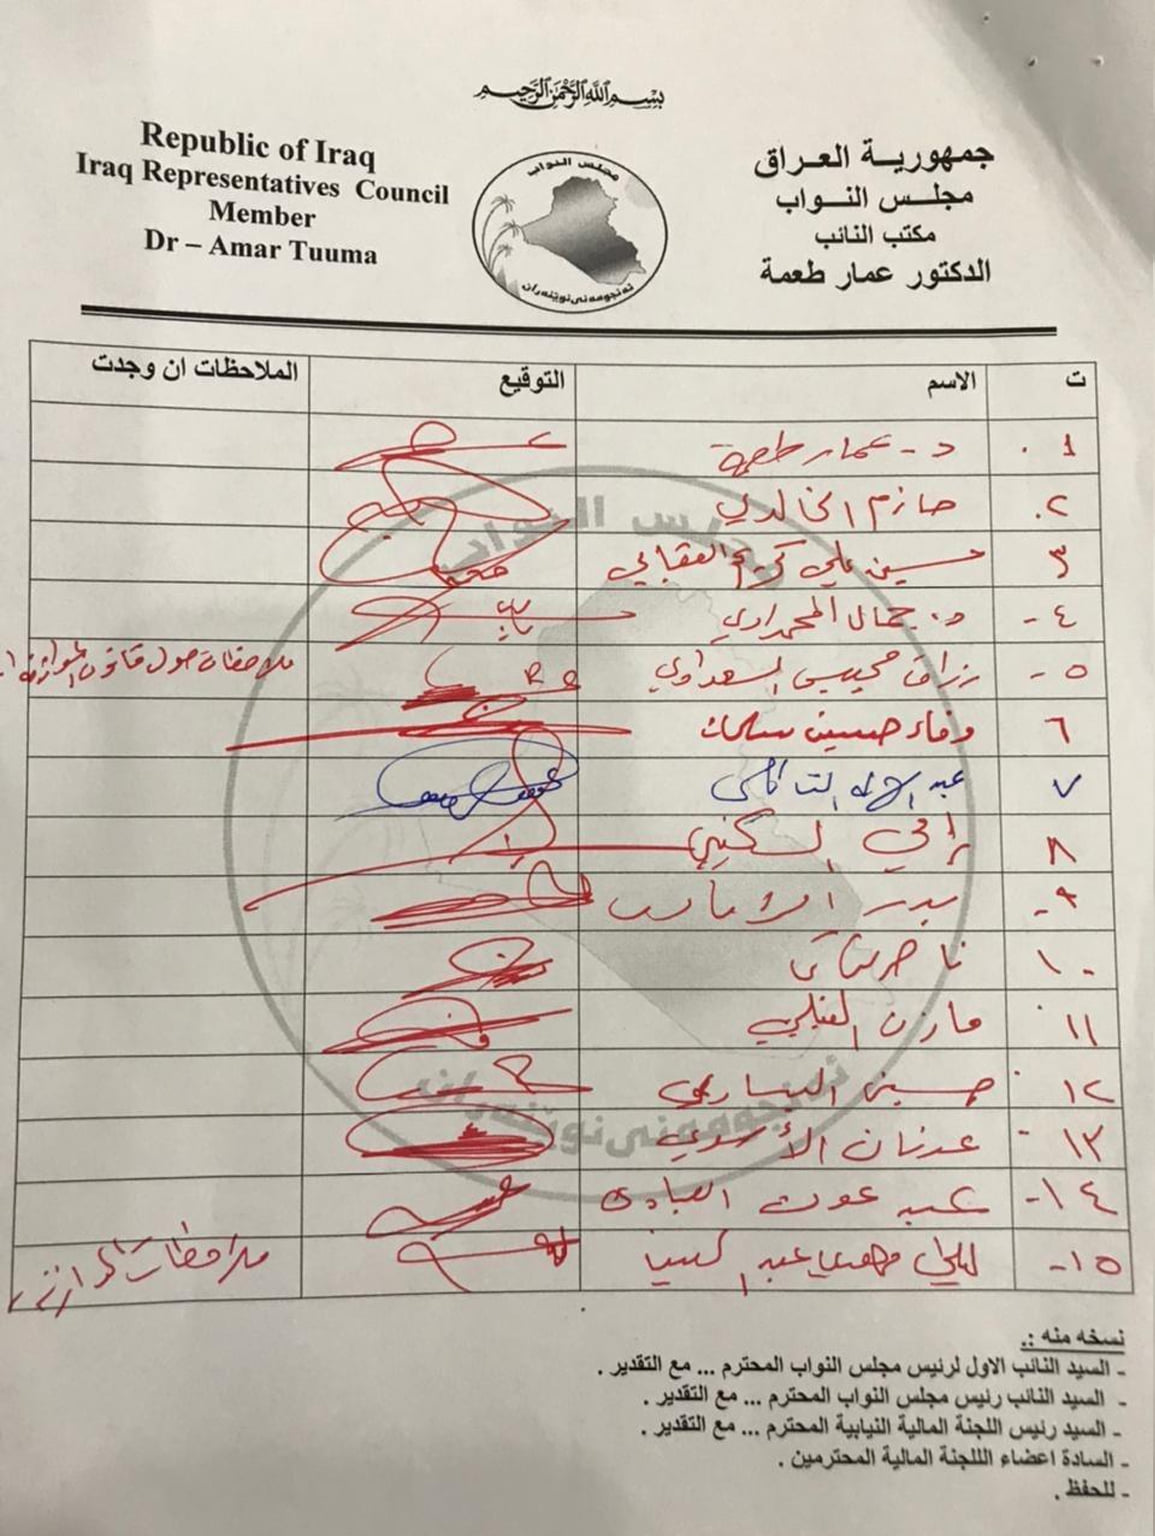 بسم الله الرحمن الرحيم
Republic of Iraq
Iraq Representatives Council
Member
Dr – Amar Tuuma
جمهورية العراق
مجلس النواب
مكتب النائب
الدكتور عمار طعمة
مجلس النواب
ئەنجومەنی نوێنەران
ت الاسم التوقيع الملاحظات ان وجدت
١. د. عمار طعمة
٢. حازم الخالدي
٣ حسين علي كريم العقابي
٤- د. جمال المحمداوي
٥- رزاق محيبس السعداوي ملاحظات حول قانون الموازنة
٦ وفاء حسين سلمان
٧ عبد الاله النائلي
٨
٩- بدر
١٠- ناصر
١١. مازن الفيلي
١٢. حسين اليساري
١٣- عدنان الأسدي
١٤- عبد عون العبادي
١٥- ليلى مهدي عبد الحسين ملاحظات
نسخه منه :.
- السيد النائب الاول لرئيس مجلس النواب المحترم ... مع التقدير .
- السيد النائب رئيس مجلس النواب المحترم ... مع التقدير .
- السيد رئيس اللجنة المالية النيابية المحترم ... مع التقدير .
- السادة اعضاء الللجنة المالية المحترمين .
- للحفظ .